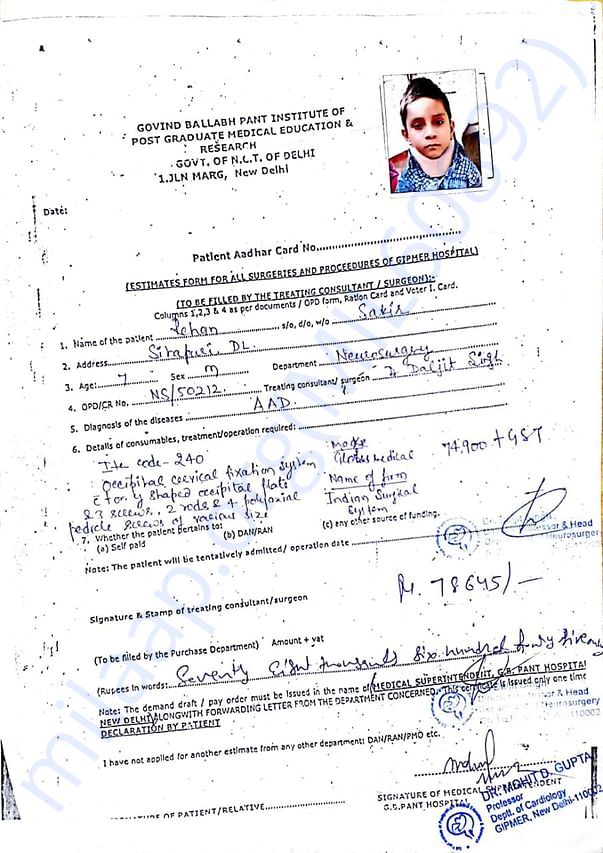 GOVIND BALLABH PANT INSTITUTE OF
POST GRADUATE MEDICAL EDUCATION &
RESEARCH
GOVT. OF N.C.T. OF DELHI
1.JLN MARG, New Delhi
Date:
Patient Aadhar Card No.
(ESTIMATES FORM FOR ALL SURGERIES AND PROCEEDURES OF GIPMER HOSPITAL)
(TO BE FILLED BY THE TREATING CONSULTANT / SURGEON):-
Columns 1,2,3 & 4 as per documents / OPD form, Ration Card and Voter I. Card.
1. Name of the patient Rehan s/o, d/o, w/o Sakir
2. Address DL.
3. Age: 7 Sex M Department Neurosurgery
4. OPD/CR No. NS/50212. Treating consultant/ surgeon Dr Daljit Singh
5. Diagnosis of the diseases AAD
6. Details of consumables, treatment/operation required:
Item code - 240 74,900 + GST
Occipital cervical fixation system Medical
Y shaped occipital plate Name of firm
& 3 screws, 2 rods & 4 polyaxial Indian Surgical
pedicle screws of various size System
7. Whether the patient pertains to:
(a) Self paid (b) DAN/RAN (c) any other source of funding.
Note: The patient will be tentatively admitted/ operation date
78645/-
Signature & Stamp of treating consultant/surgeon
(To be filled by the Purchase Department) Amount + vat
(Rupees in words: Seventy eight thousands six hundred forty five only
Note: The demand draft / pay order must be issued in the name of MEDICAL SUPERINTENDENT, G.B. PANT HOSPITAL
NEW DELHI ALONGWITH FORWARDING LETTER FROM THE DEPARTMENT CONCERNED. This certificate is issued only one time
DECLARATION BY PATIENT
I have not applied for another estimate from any other department: DAN/RAN/PMO etc.
SIGNATURE OF MEDICAL SUPERINTENDENT
SIGNATURE OF PATIENT/RELATIVE G.B.PANT HOSPITAL
DR. MOHIT D. GUPTA
Professor
Deptt. of Cardiology
GIPMER, New Delhi-110002